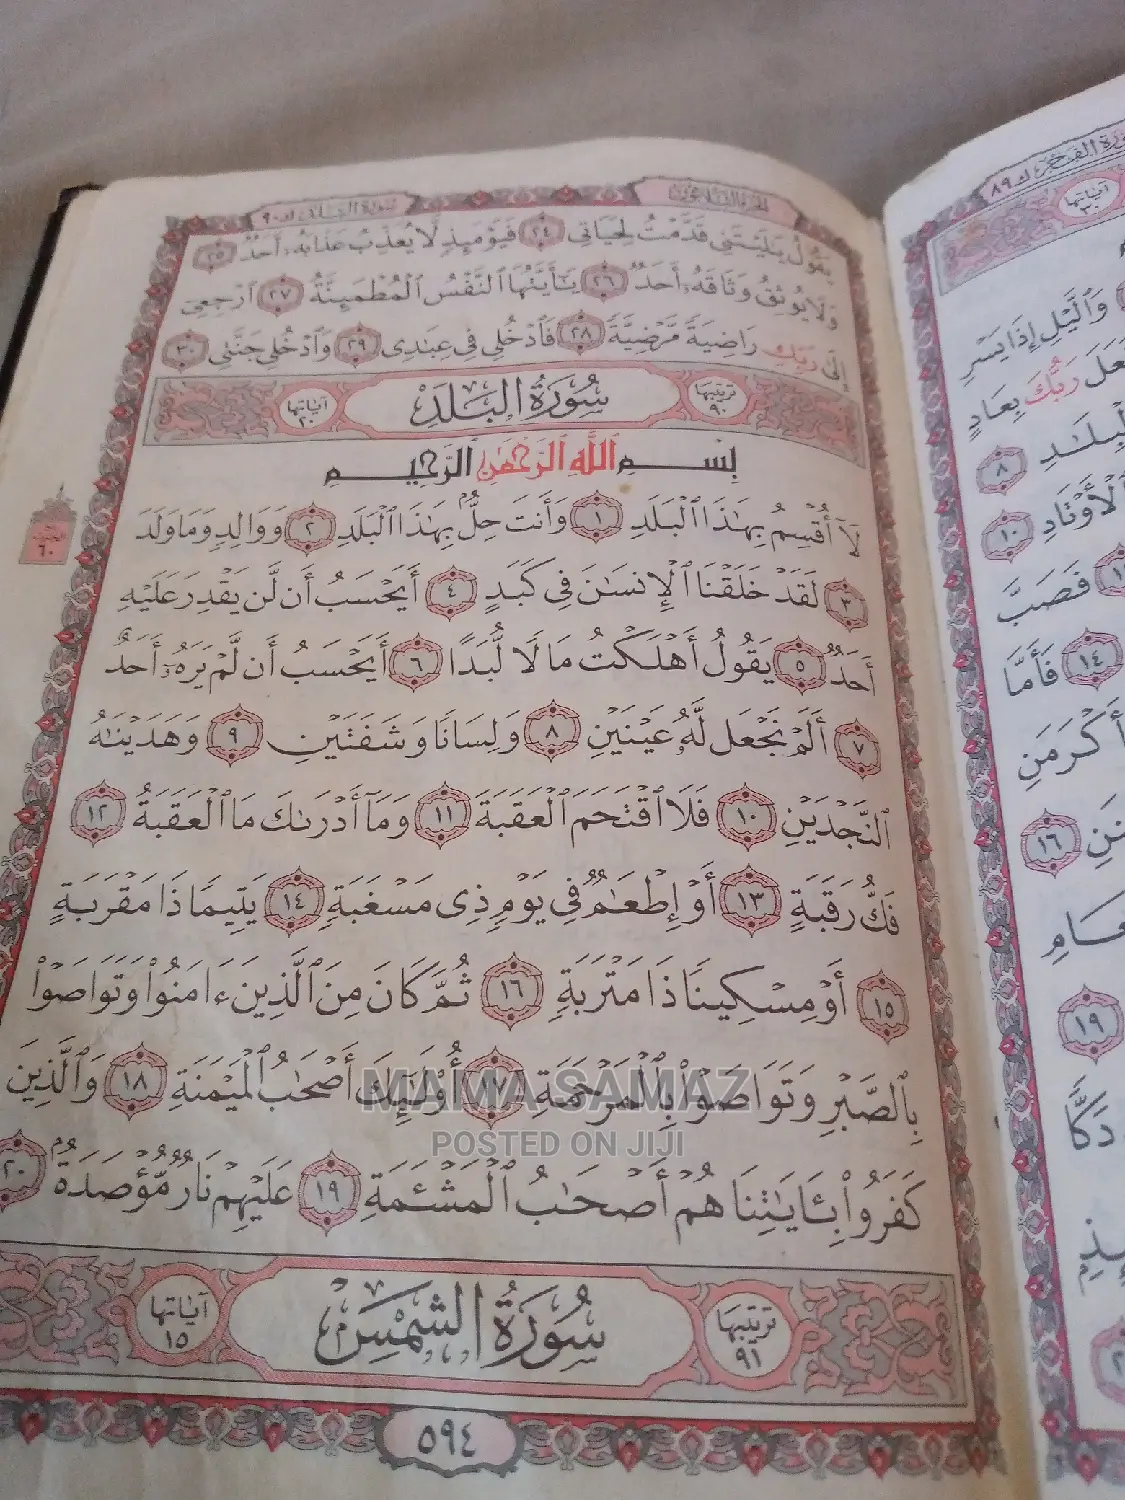 سورة البلد ك ٩٠
الجزء الثلاثون
يَقُولُ يَٰلَيْتَنِي قَدَّمْتُ لِحَيَاتِي ٢٤ فَيَوْمَئِذٍ لَّا يُعَذِّبُ عَذَابَهُۥٓ أَحَدٌ ٢٥
وَلَا يُوثِقُ وَثَاقَهُۥٓ أَحَدٌ ٢٦ يَٰٓأَيَّتُهَا ٱلنَّفْسُ ٱلْمُطْمَئِنَّةُ ٢٧ ٱرْجِعِىٓ
إِلَىٰ رَبِّكِ رَاضِيَةً مَّرْضِيَّةً ٢٨ فَٱدْخُلِى فِى عِبَٰدِى ٢٩ وَٱدْخُلِى جَنَّتِى ٣٠
ترتيبها ٩٠ سُورَةُ البَلَدِ آياتها ٢٠
بِسْمِ ٱللَّهِ ٱلرَّحْمَٰنِ ٱلرَّحِيمِ
لَآ أُقْسِمُ بِهَٰذَا ٱلْبَلَدِ ١ وَأَنتَ حِلٌّۢ بِهَٰذَا ٱلْبَلَدِ ٢ وَوَالِدٍ وَمَا وَلَدَ
٣ لَقَدْ خَلَقْنَا ٱلْإِنسَٰنَ فِى كَبَدٍ ٤ أَيَحْسَبُ أَن لَّن يَقْدِرَ عَلَيْهِ
أَحَدٌ ٥ يَقُولُ أَهْلَكْتُ مَالًا لُّبَدًا ٦ أَيَحْسَبُ أَن لَّمْ يَرَهُۥٓ أَحَدٌ
٧ أَلَمْ نَجْعَل لَّهُۥ عَيْنَيْنِ ٨ وَلِسَانًا وَشَفَتَيْنِ ٩ وَهَدَيْنَٰهُ
ٱلنَّجْدَيْنِ ١٠ فَلَا ٱقْتَحَمَ ٱلْعَقَبَةَ ١١ وَمَآ أَدْرَىٰكَ مَا ٱلْعَقَبَةُ ١٢
فَكُّ رَقَبَةٍ ١٣ أَوْ إِطْعَٰمٌ فِى يَوْمٍ ذِى مَسْغَبَةٍ ١٤ يَتِيمًا ذَا مَقْرَبَةٍ
١٥ أَوْ مِسْكِينًا ذَا مَتْرَبَةٍ ١٦ ثُمَّ كَانَ مِنَ ٱلَّذِينَ ءَامَنُوا۟ وَتَوَاصَوْا۟
بِٱلصَّبْرِ وَتَوَاصَوْا۟ بِٱلْمَرْحَمَةِ ١٧ أُو۟لَٰٓئِكَ أَصْحَٰبُ ٱلْمَيْمَنَةِ ١٨ وَٱلَّذِينَ
كَفَرُوا۟ بِـَٔايَٰتِنَا هُمْ أَصْحَٰبُ ٱلْمَشْـَٔمَةِ ١٩ عَلَيْهِمْ نَارٌ مُّؤْصَدَةٌۢ ٢٠
ترتيبها ٩١ سُورَةُ الشَّمْسِ آياتها ١٥
٥٩٤
سورة الفجر ك ٨٩
آياتها ٣٠
وَٱلَّيْلِ إِذَا يَسْرِ
رَبُّكَ بِعَادٍ
٨
ٱلْأَوْتَادِ ١٠
فَصَبَّ
١٤ فَأَمَّا
أَكْرَمَنِ
١٦
١٩
دَكًّا
MAMA SAMAZ
POSTED ON JIJI